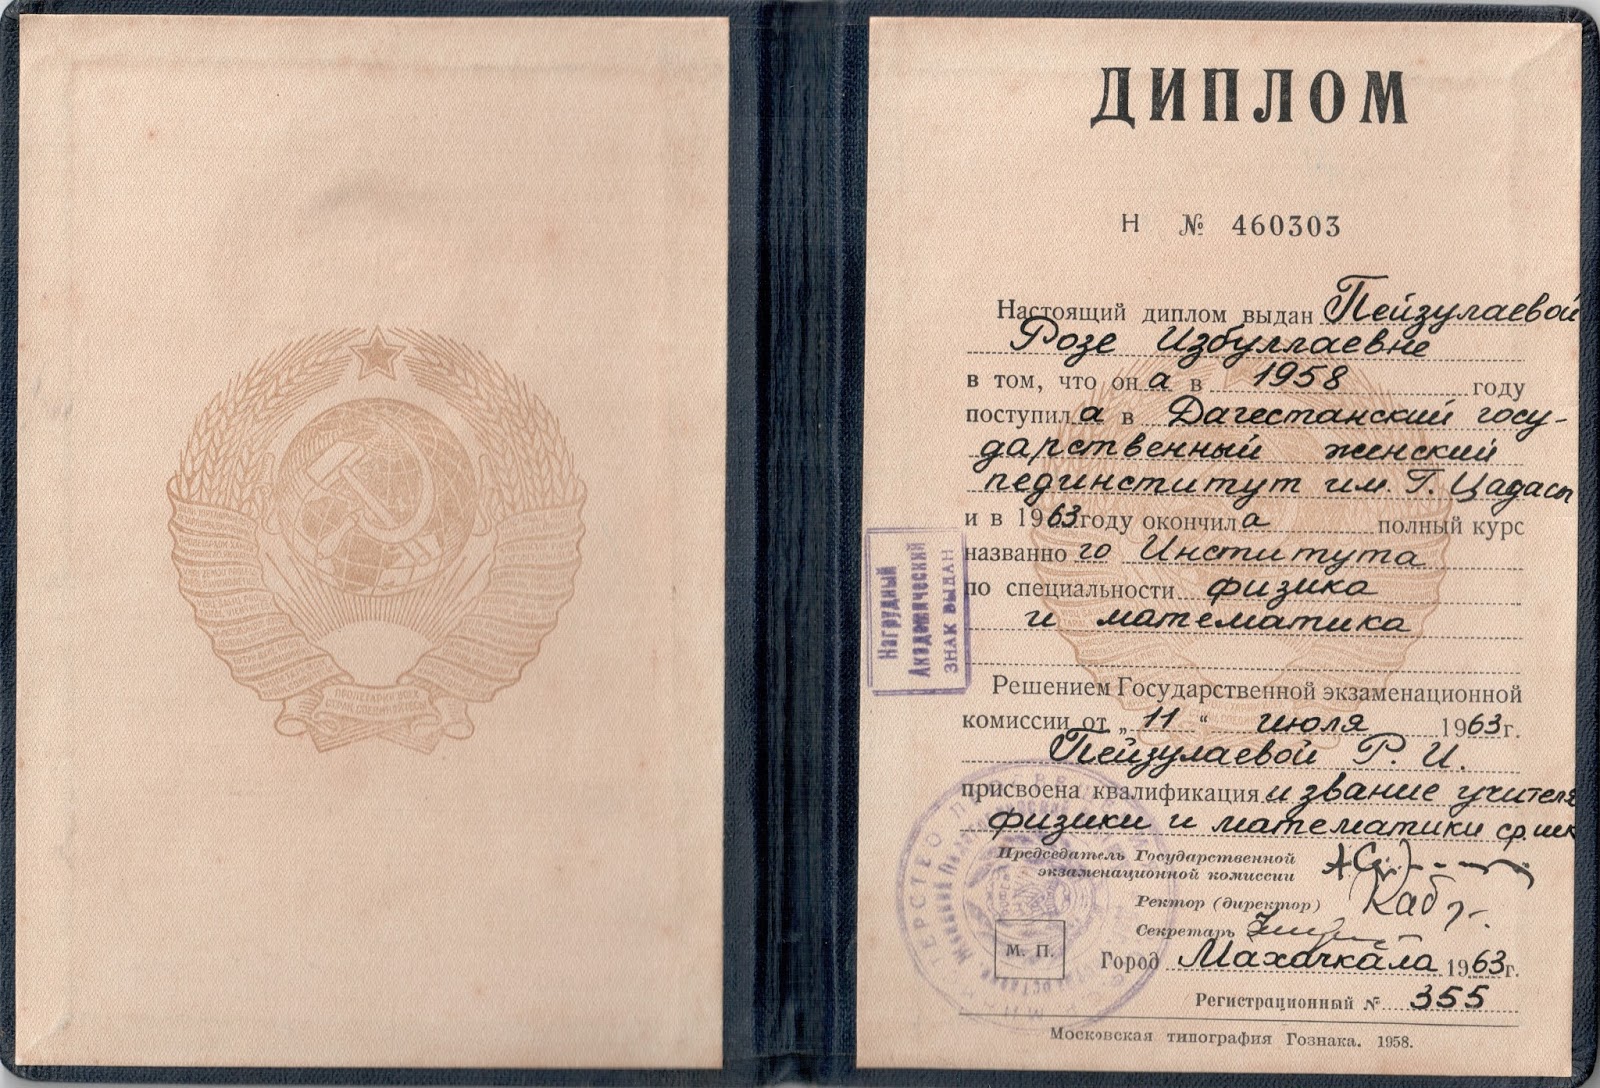 ПРОЛЕТАРИИ ВСЕХ
СТРАН, СОЕДИНЯЙТЕСЬ
ДИПЛОМ
Н № 460303
Настоящий диплом выдан Пейзулаевой
Розе Избуллаевне
в том, что он а в 1958 году
поступил а в Дагестанский госу-
дарственный женский
пединститут им. Г. Цадасы
и в 1963 году окончил а полный курс
названно го Института
по специальности физика
и математика
Решением Государственной экзаменационной
комиссии от „ 11 “ июля 1963 г.
Пейзулаевой Р. И.
присвоена квалификация и звание учителя
физики и математики ср. шк
Председатель Государственной
экзаменационной комиссии
Ректор (директор)
Секретарь
М. П.
Город Махачкала 1963 г.
Регистрационный № 355
Московская типография Гознака. 1958.
Нагрудный
Академический
ЗНАК ВЫДАН